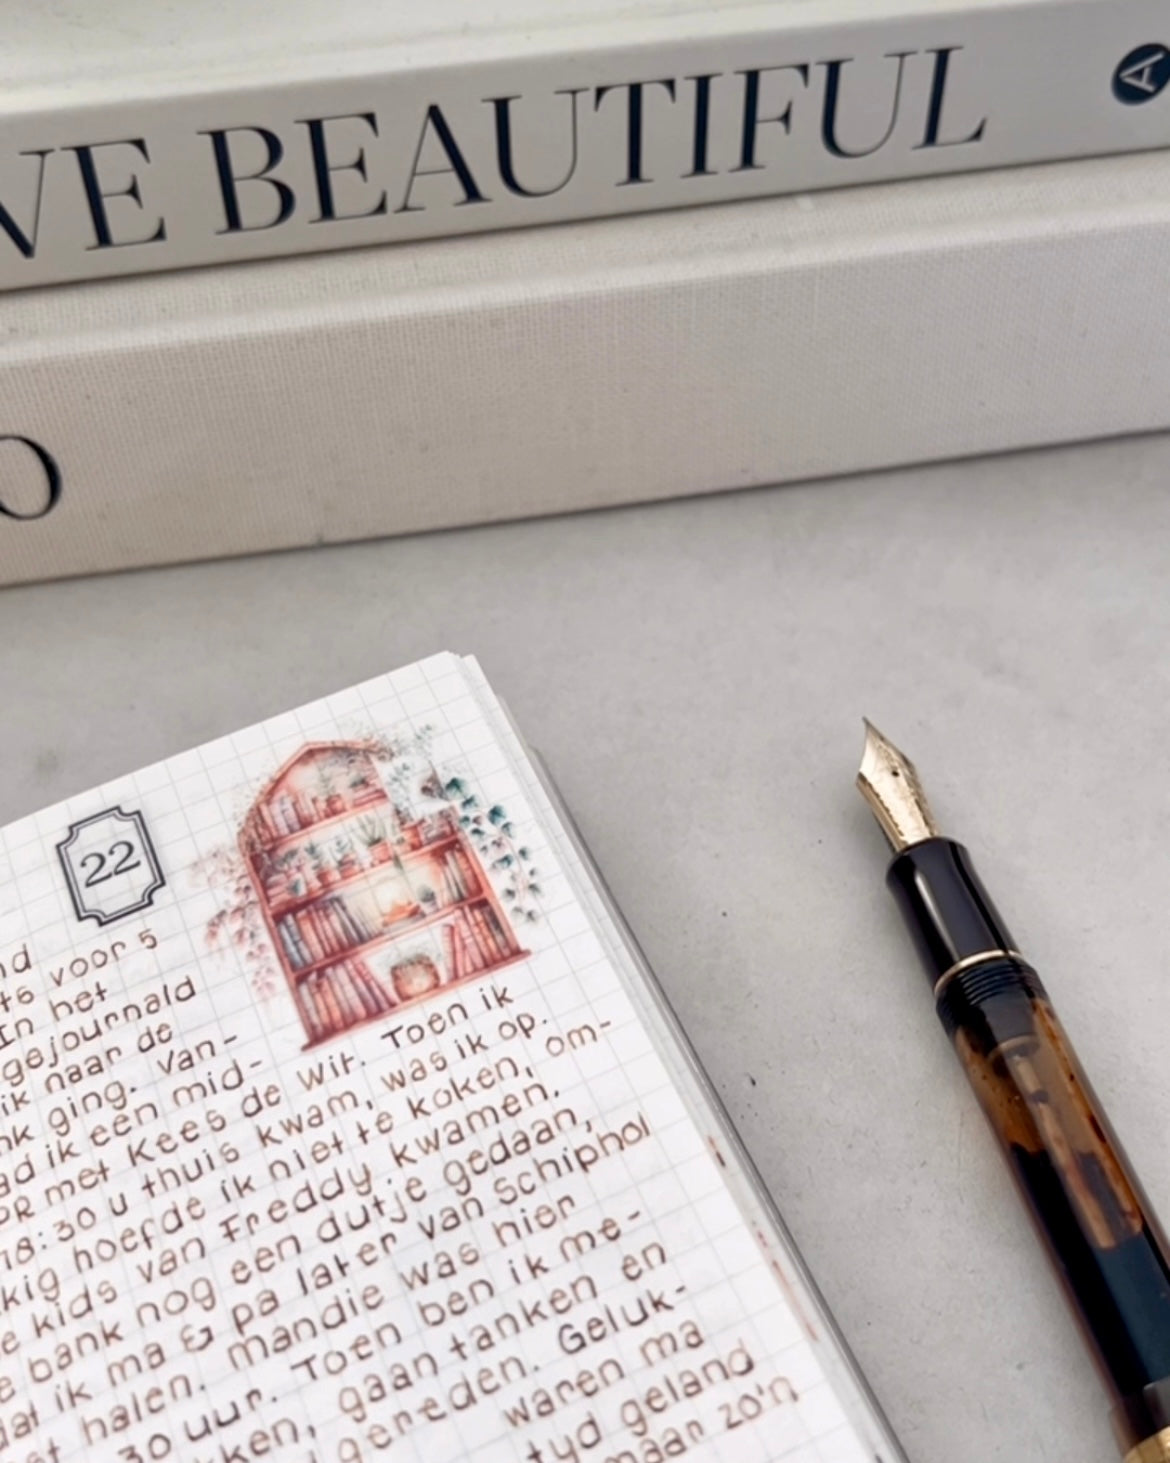 VE BEAUTIFUL
A
O
22
nd
+6 voor 5
In het
gejournald
ik naar de
nk ging. Van-
ad ik een mid-
OR met Kees de wit. Toen ik
18:30 u thuis kwam, was ik op.
kkig hoefde ik niet te koken, om-
e kids van Freddy kwamen.
e bank nog een dutje gedaan,
dat ik ma & pa later van Schiphol
halen. mandie was hier
30 uur. Toen ben ik me-
kken, gaan tanken en
gereden. Geluk-
waren ma
tyd geland
maar zo'n